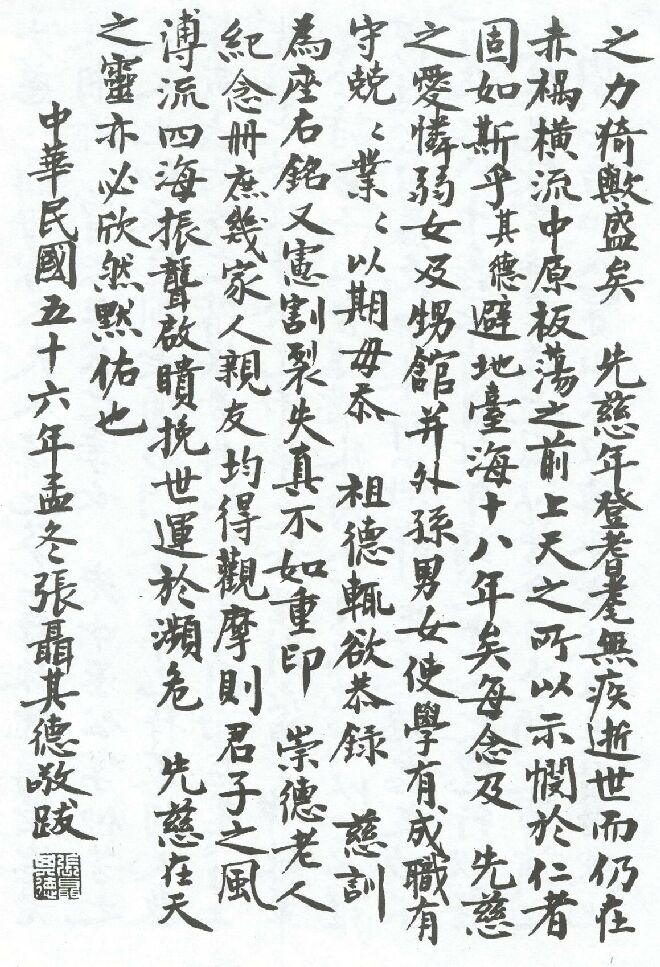 之力猗歟盛矣　先慈年登耆耄無疾逝世而仍在
赤禍橫流中原板蕩之前上天之所以示憫於仁者
固如斯乎其德避地臺海十八年矣每念及　先慈
之愛憐弱女及甥館并外孫男女使學有成職有
守兢〻業〻以期毋忝　祖德輒欲恭錄　慈訓
為座右銘又慮割裂失真不如重印　崇德老人
紀念冊庶幾家人親友均得觀摩則君子之風
溥流四海振聾啟聵挽世運於瀕危　先慈在天
之靈亦必欣然默佑也
中華民國五十六年孟冬張聶其德敬跋
張聶其德